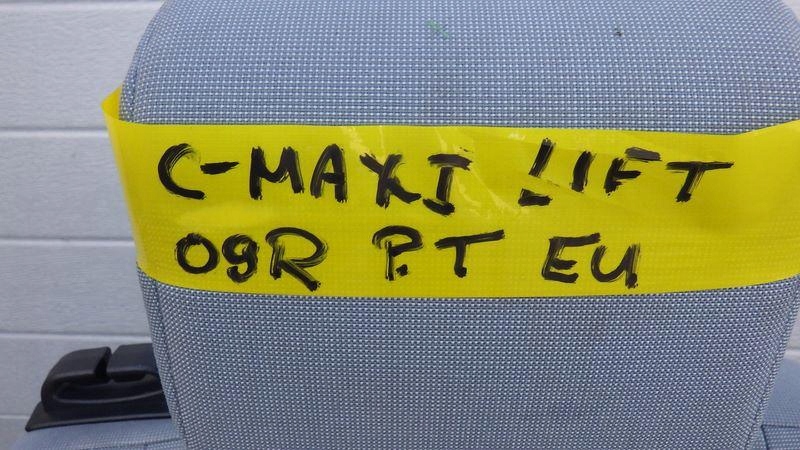 C-MAX I LIFT
09R P.T EU